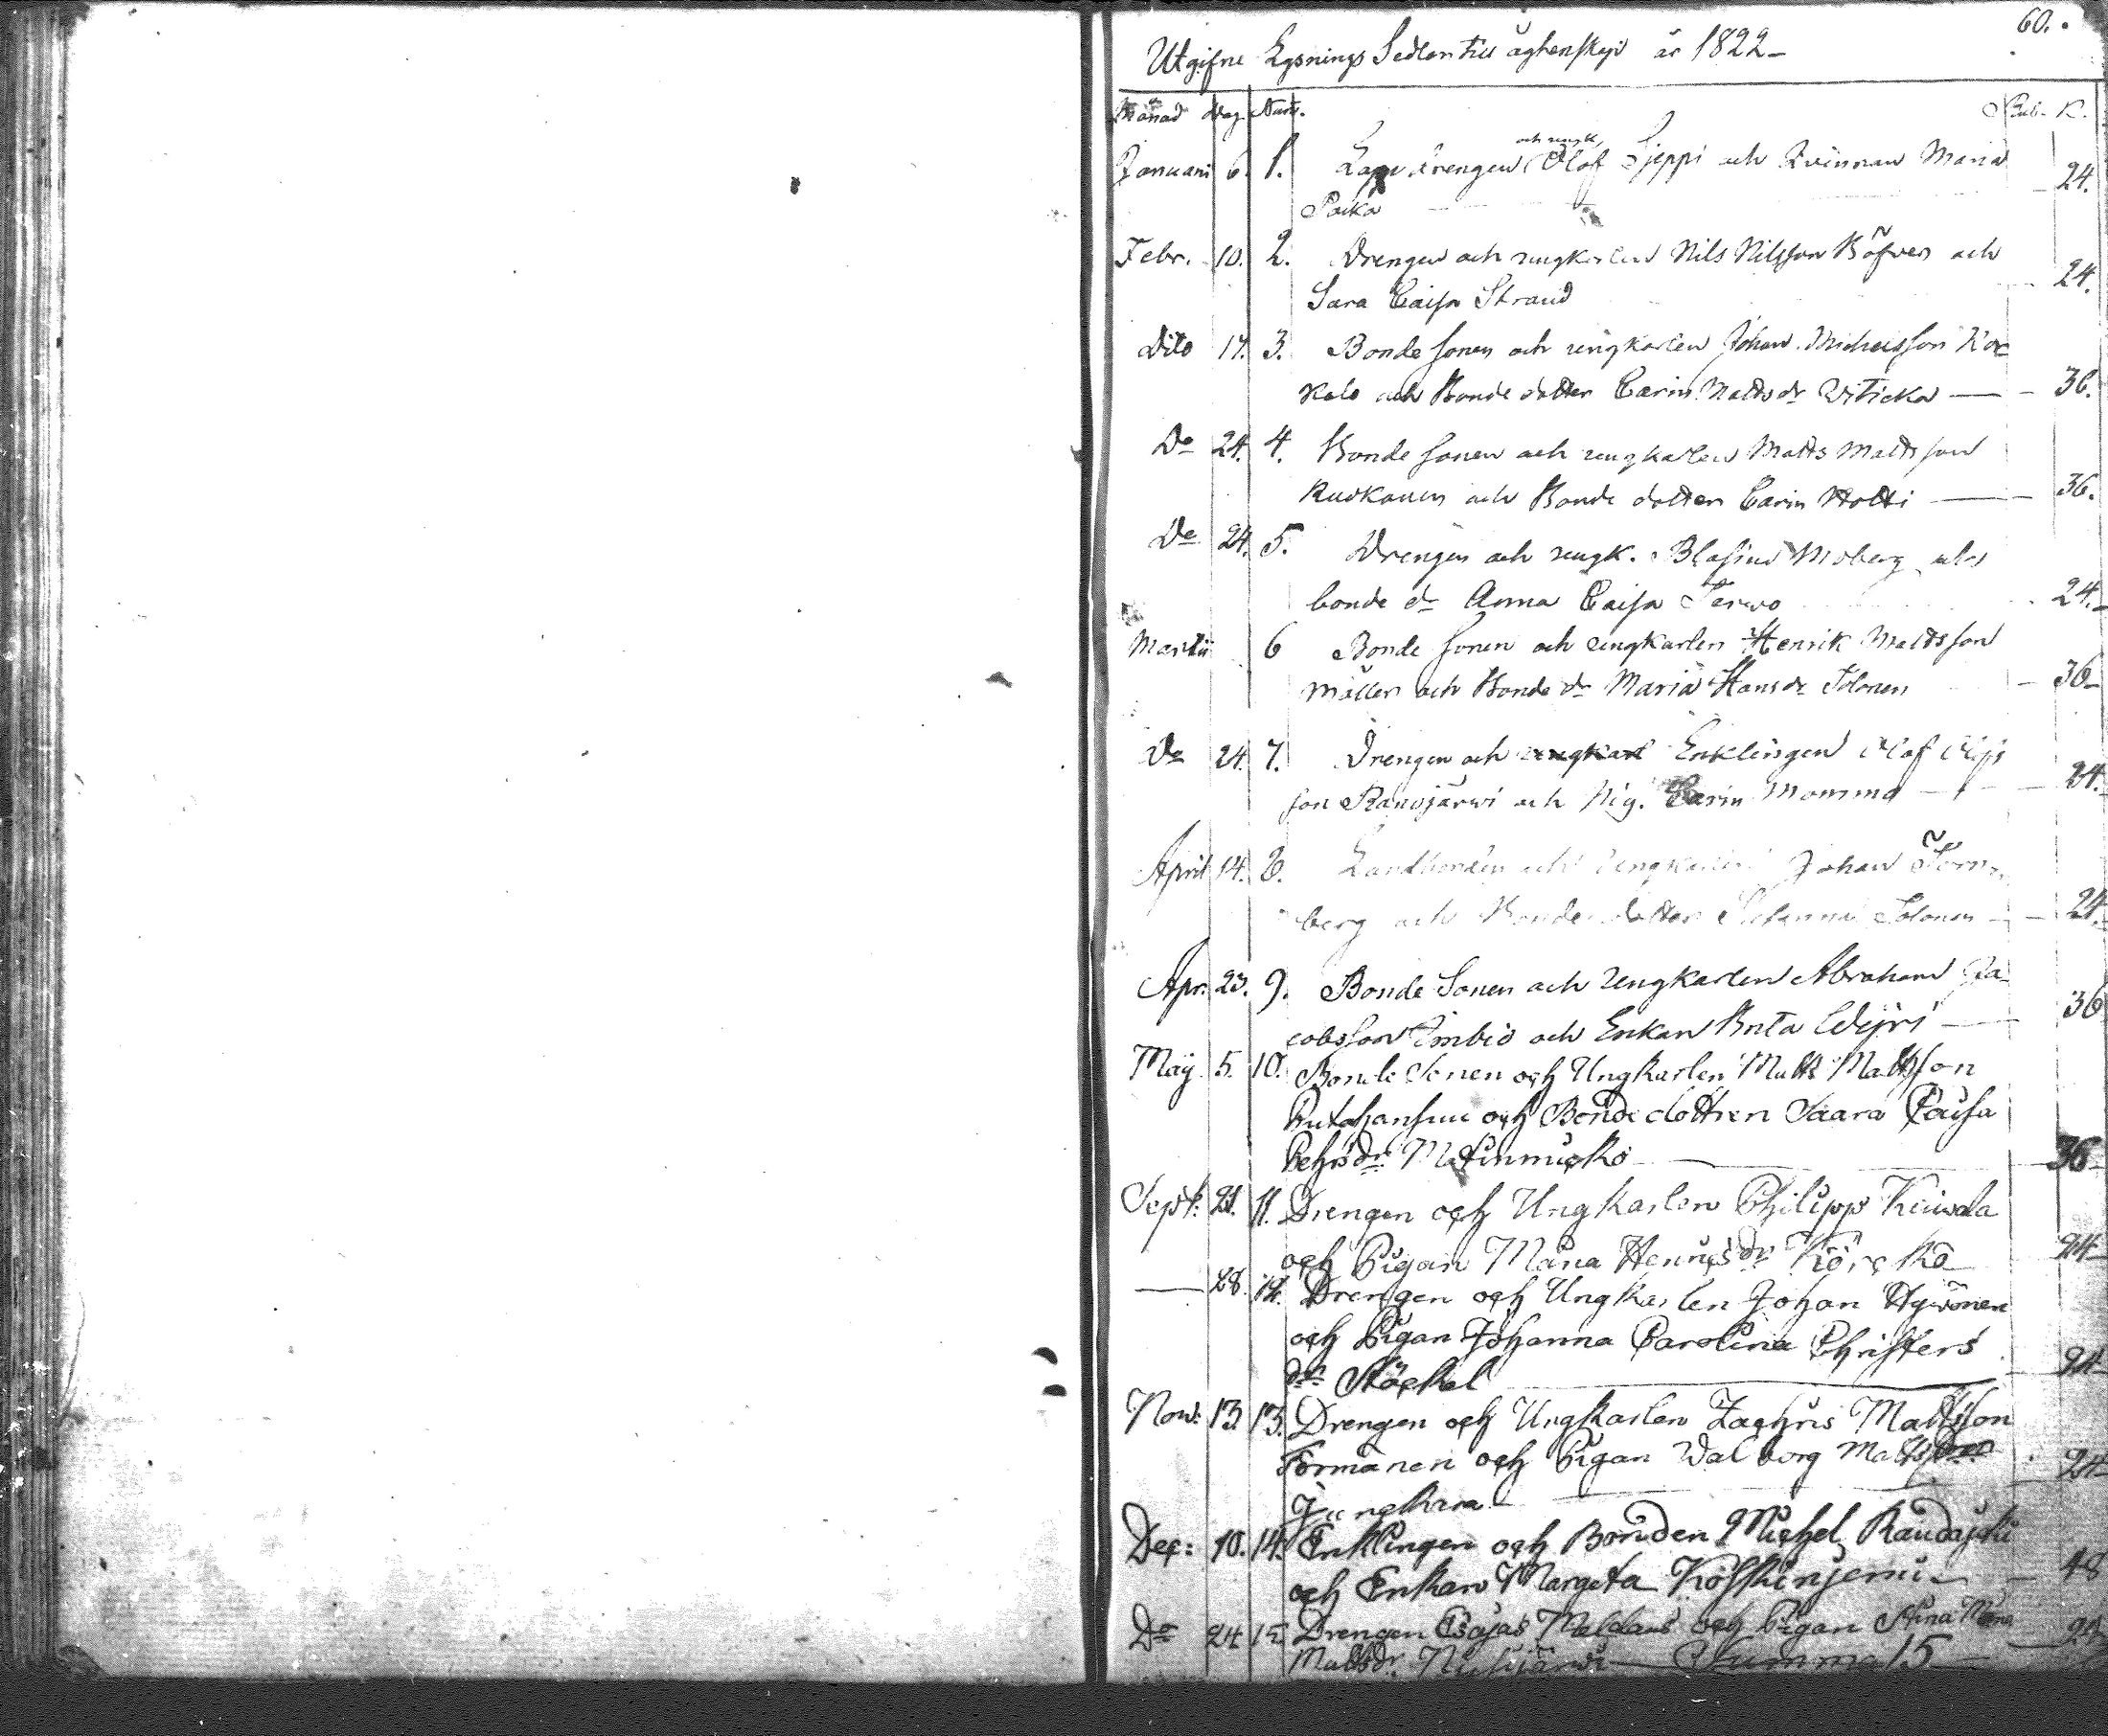 60.
Utgifne Lysnings Sedlar till ägtenskap år 1822
Månad Dag Num. Rub. K.
och ungk.
Januari 6. 1. Lapp drengen Olof Sjeppi och Qvinnan Maria
Paika 24.
Febr. 10. 2. Drengen och ungkarlen Nils Nilsson Böfver och
Sara Caisa Strand 24.
Dito 17. 3. Bonde sonen och ungkarlen Johan Michelsson Kor
kalo och Bonde dotter Carin Matts dr Viticka 36.
Do 24. 4. Bonde sonen och ungkarlen Matts Mattsson
Ruokanen och Bonde dotter Carin Holtti 36.
Do 24. 5. Drengen och ungk. Blasius Moberg och
bonde dr Anna Caisa Serwo 24.
Martii 6 Bonde sonen och ungkarlen Henrik Mattsson
Möller och Bonde dr Maria Hans dr Tolonen 36
Do 24. 7. Drengen och ungkarl Enklingen Olof Olofs
son Ranojärwi och Pig. Carin Momma 24.
April 14. 8. Landbonden och ungkarlen Johan Törn
berg och Bonde dotter Johanna Tolonen 24.
Apr. 23. 9. Bonde Sonen och Ungkarlen Abraham Ja
cobsson Imbiö och Enkan Brita 36
Maÿ 5. 10. Bonde Sonen och Ungkarlen Matts Mattsson
och Bonde dottren Saara Caisa
Pehrs dr 36
Sept: 21. 11. Drengen och Ungkarlen Philipp Kiuwala
och Pigan Maria Henrics dr Körckö 24
28. 12. Drengen och Ungkarlen Johan Hywönen
och Pigan Johanna Carolina Christers
dr Stöckel 24
Now: 13. 13. Drengen och Ungkarlen Zachris Mattsson
Formanen och Pigan Walborg Matts dr
Junckara 24
Dec: 10. 14. Enklingen och Bonden Michel Raudajoki
och Enkan Margeta Koskinjemi 48
Do 24 15 Drengen Esajas och Pigan Stina Maria
Matts dr Summa 15 24